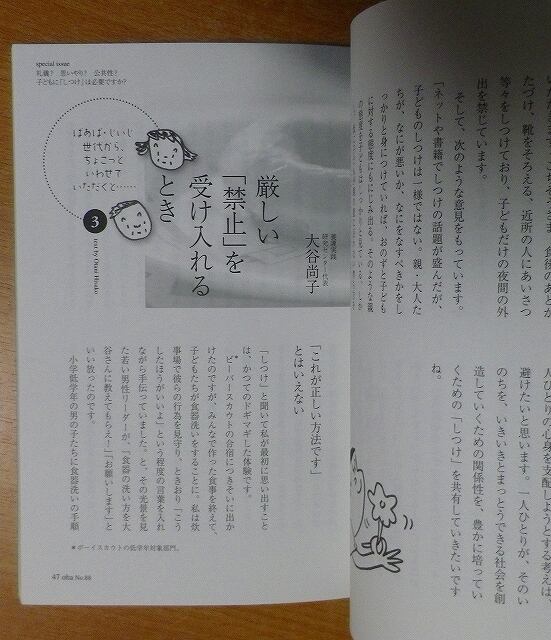 special issue
礼儀？　思いやり？　公共性？
子どもに「しつけ」は必要ですか？
ばあば・じいじ
世代から、
ちょこっと
いわせて
いただくと……
3
text by Otani Hisako
厳しい
「禁止」を
受け入れる
とき
養護実践
研究センター代表
大谷尚子
「これが正しい方法です」
とはいえない
「しつけ」と聞いて私が最初に思い出すこと
は、かつてのドギマギした体験です。
ビーバースカウト*の合宿につきそいに出か
けたのですが、みんなで作った食事を終えて、
子どもたちが食器洗いをすることに。私は炊
事場で彼らの行為を見守り、ときおり「こう
したほうがいいよ」という程度の言葉を入れ
ながら手伝っていました。と、その光景を見
た若い男性リーダーが、「食器の洗い方を大
谷さんに教えてもらえ！」「お願いします」と
いい放ったのです。
小学低学年の男の子たちに食器洗いの手順
＊ボーイスカウトの低学年対象部門。
47 oha No.88
たづけ、靴をそろえる、近所の人にあいさつ
等々をしつけており、子どもだけの夜間の外
出を禁じています。
そして、次のような意見をもっています。
「ネットや書籍でしつけの話題が盛んだが、
子どものしつけは一様ではない。親・大人た
ちが、なにが悪いか、なにをなすべきかをし
っかりと身につけていれば、おのずと子ども
に対する態度にもにじみ出る。そのような親
人ひとりの心身を支配しようとする考えは
避けたいと思います。一人ひとりが、そのい
のちを、いきいきとまっとうできる社会を創
造していくための関係性を、豊かに培ってい
くための「しつけ」を共有していきたいです
ね。